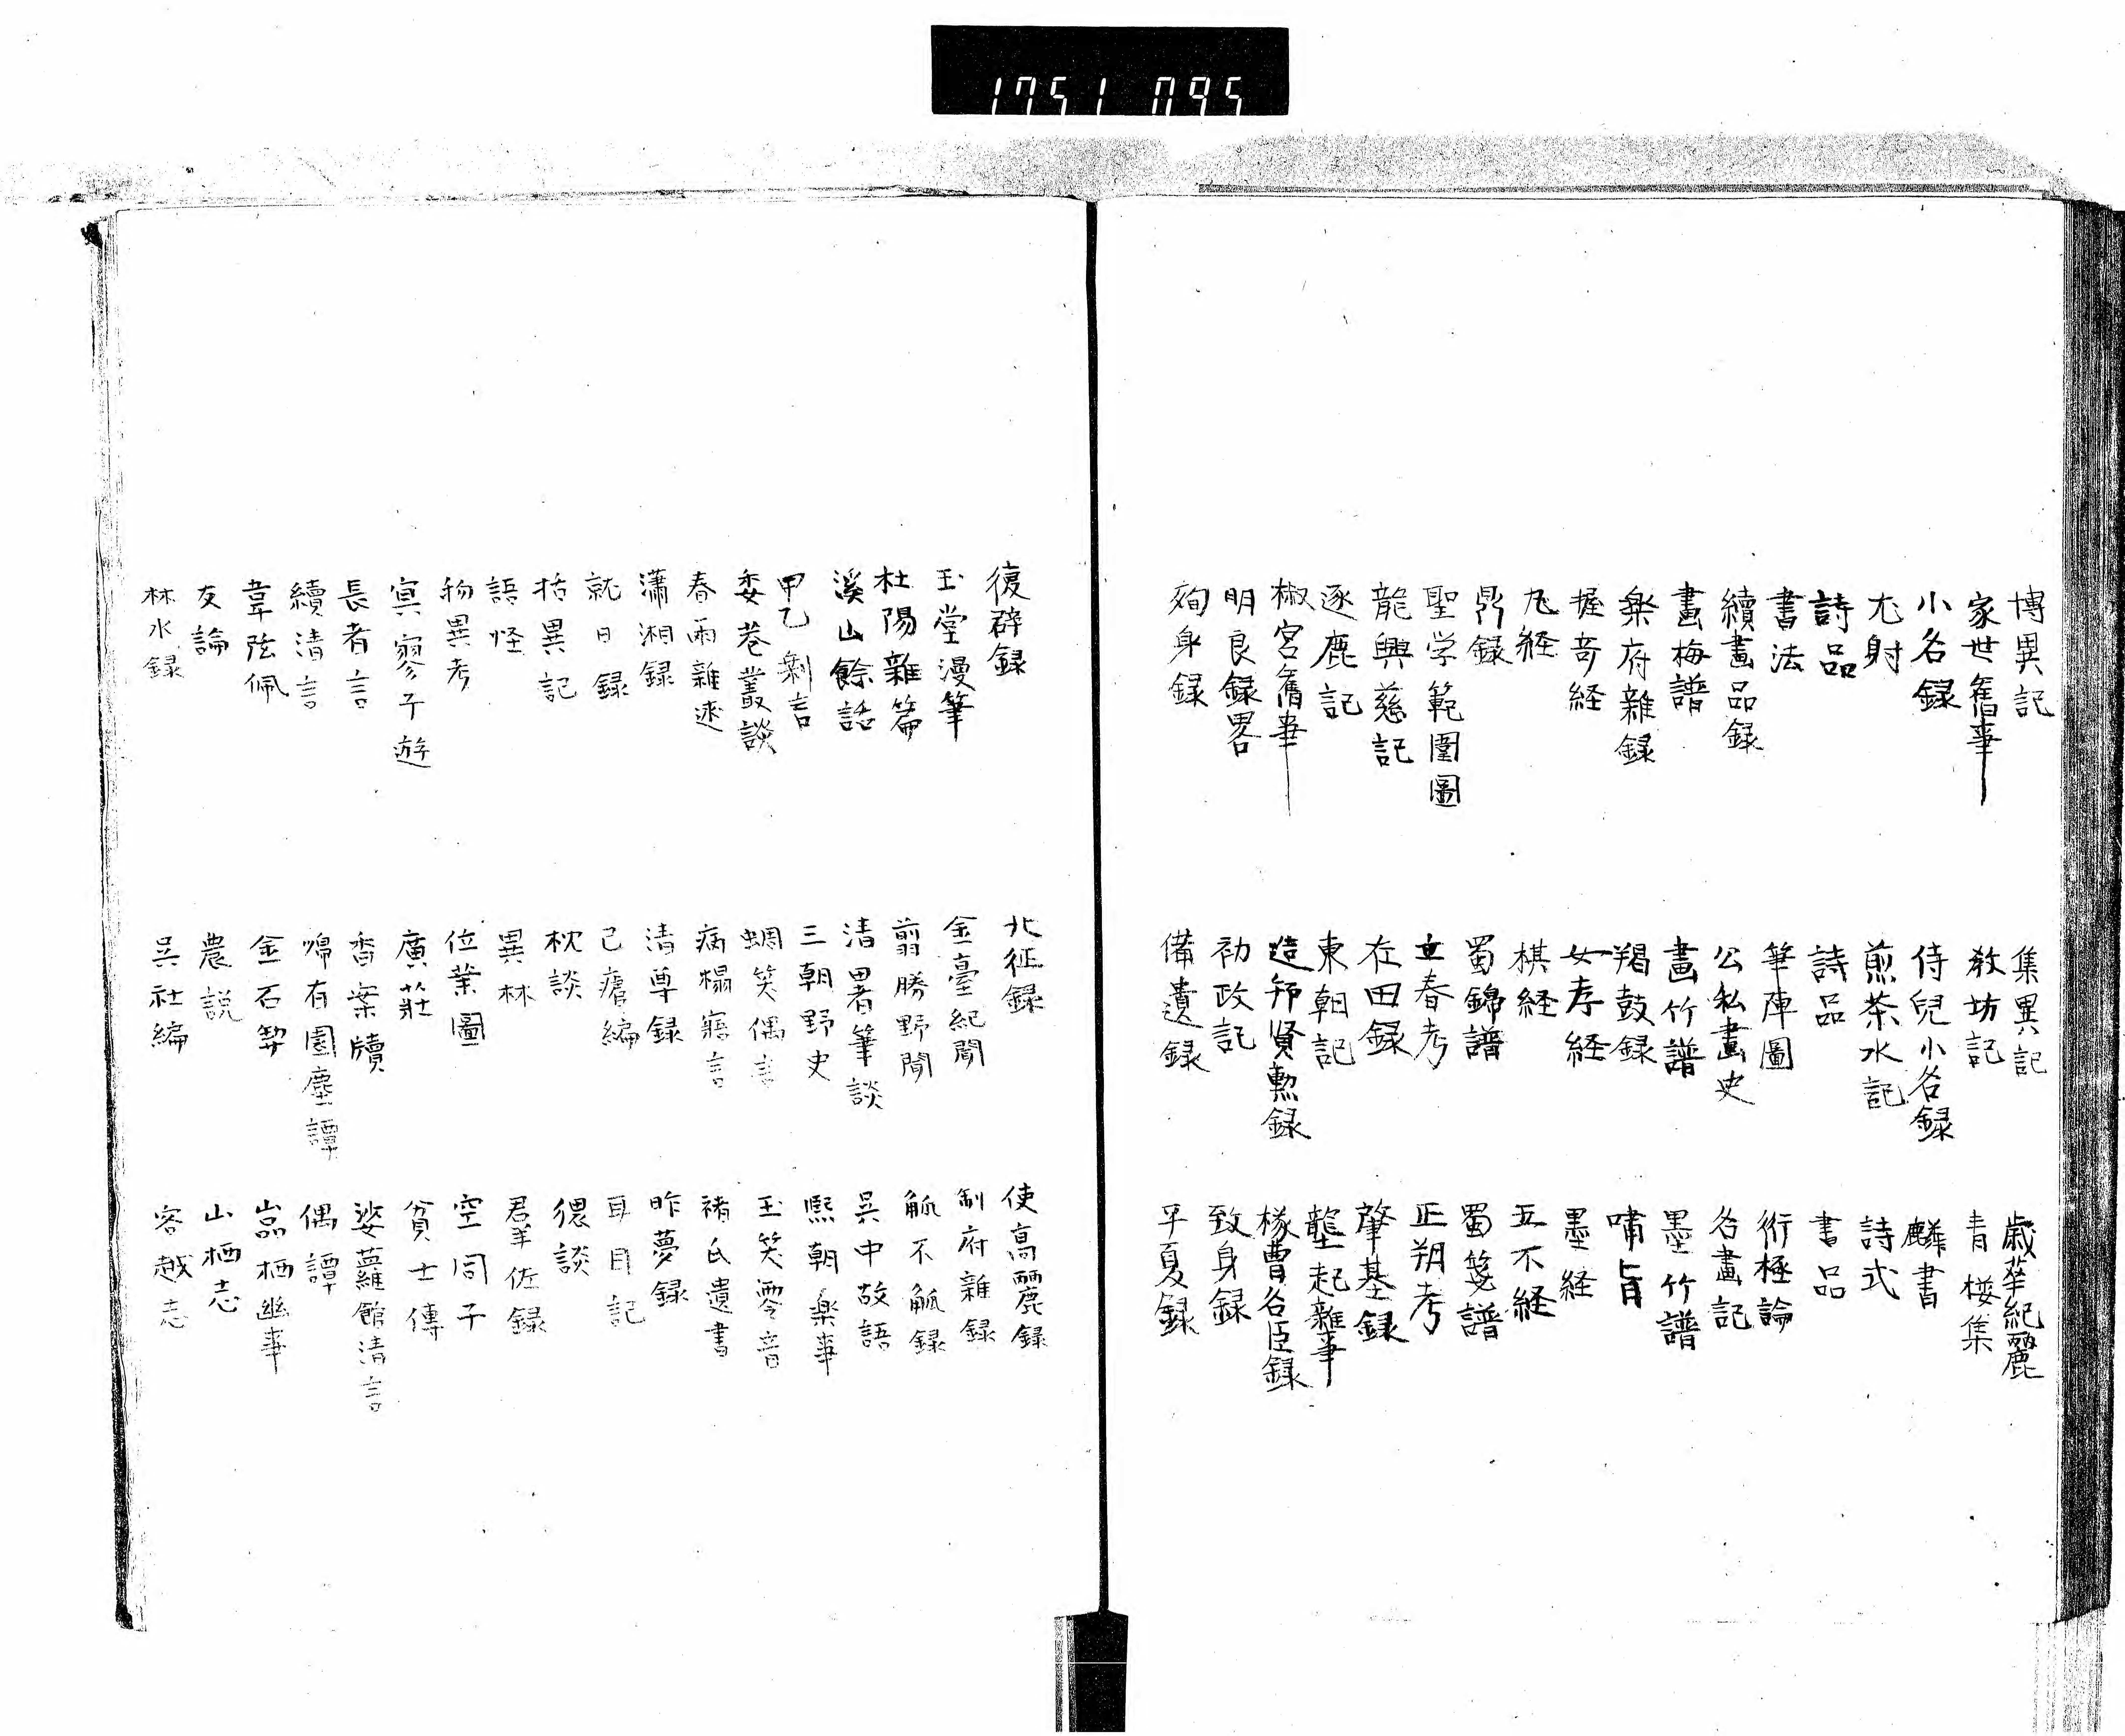 1751 095
博異記 集異記 歳華紀麗
家世舊事 教坊記 青楼集
小名録 侍兒小名録 麟書
尤射 煎茶水記 詩式
詩品 詩品 書品
書法 筆陣圖 衍極論
續畫品録 公私畫史 名畫記
畫梅譜 畫竹譜 墨竹譜
楽府雜録 羯鼓録 嘯旨
握奇経 女孝経 墨経
丸経 棋経 五木経
鼎録 蜀錦譜 蜀箋譜
聖学範圍圖 立春考 正朔考
龍興慈記 在田録 肇基録
逐鹿記 東朝記 壟起雜事
椒宮舊事 造邦賢勲録 椽曹名臣録
明良録畧 初政記 致身録
殉身録 備遺録 平夏録
復辟録 北征録 使高麗録
玉堂漫筆 金臺紀聞 制府雜録
杜陽雜篇 翦勝野聞 觚不觚録
溪山餘話 清暑筆談 呉中故語
甲乙剰言 三朝野史 熙朝楽事
委巷叢談 蜩笑偶言 玉笑零音
春雨雜述 病榻寤言 褚氏遺書
瀟湘録 清尊録 昨夢録
就日録 己瘧編 耳目記
括異記 枕談 偎談
語怪 異林 羣佐録
物異考 位業圖 空同子
冥寥子遊 廣莊 貧士傳
長者言 香案牘 娑蘿館清言
續清言 歸有園塵譚 偶譚
韋弦佩 金石契 嵓栖幽事
友論 農説 山栖志
林水録 呉社編 客越志